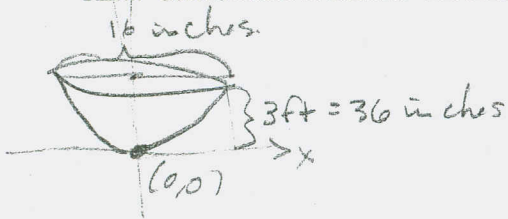 16 inches.
3ft = 36 inches
x
(0,0)